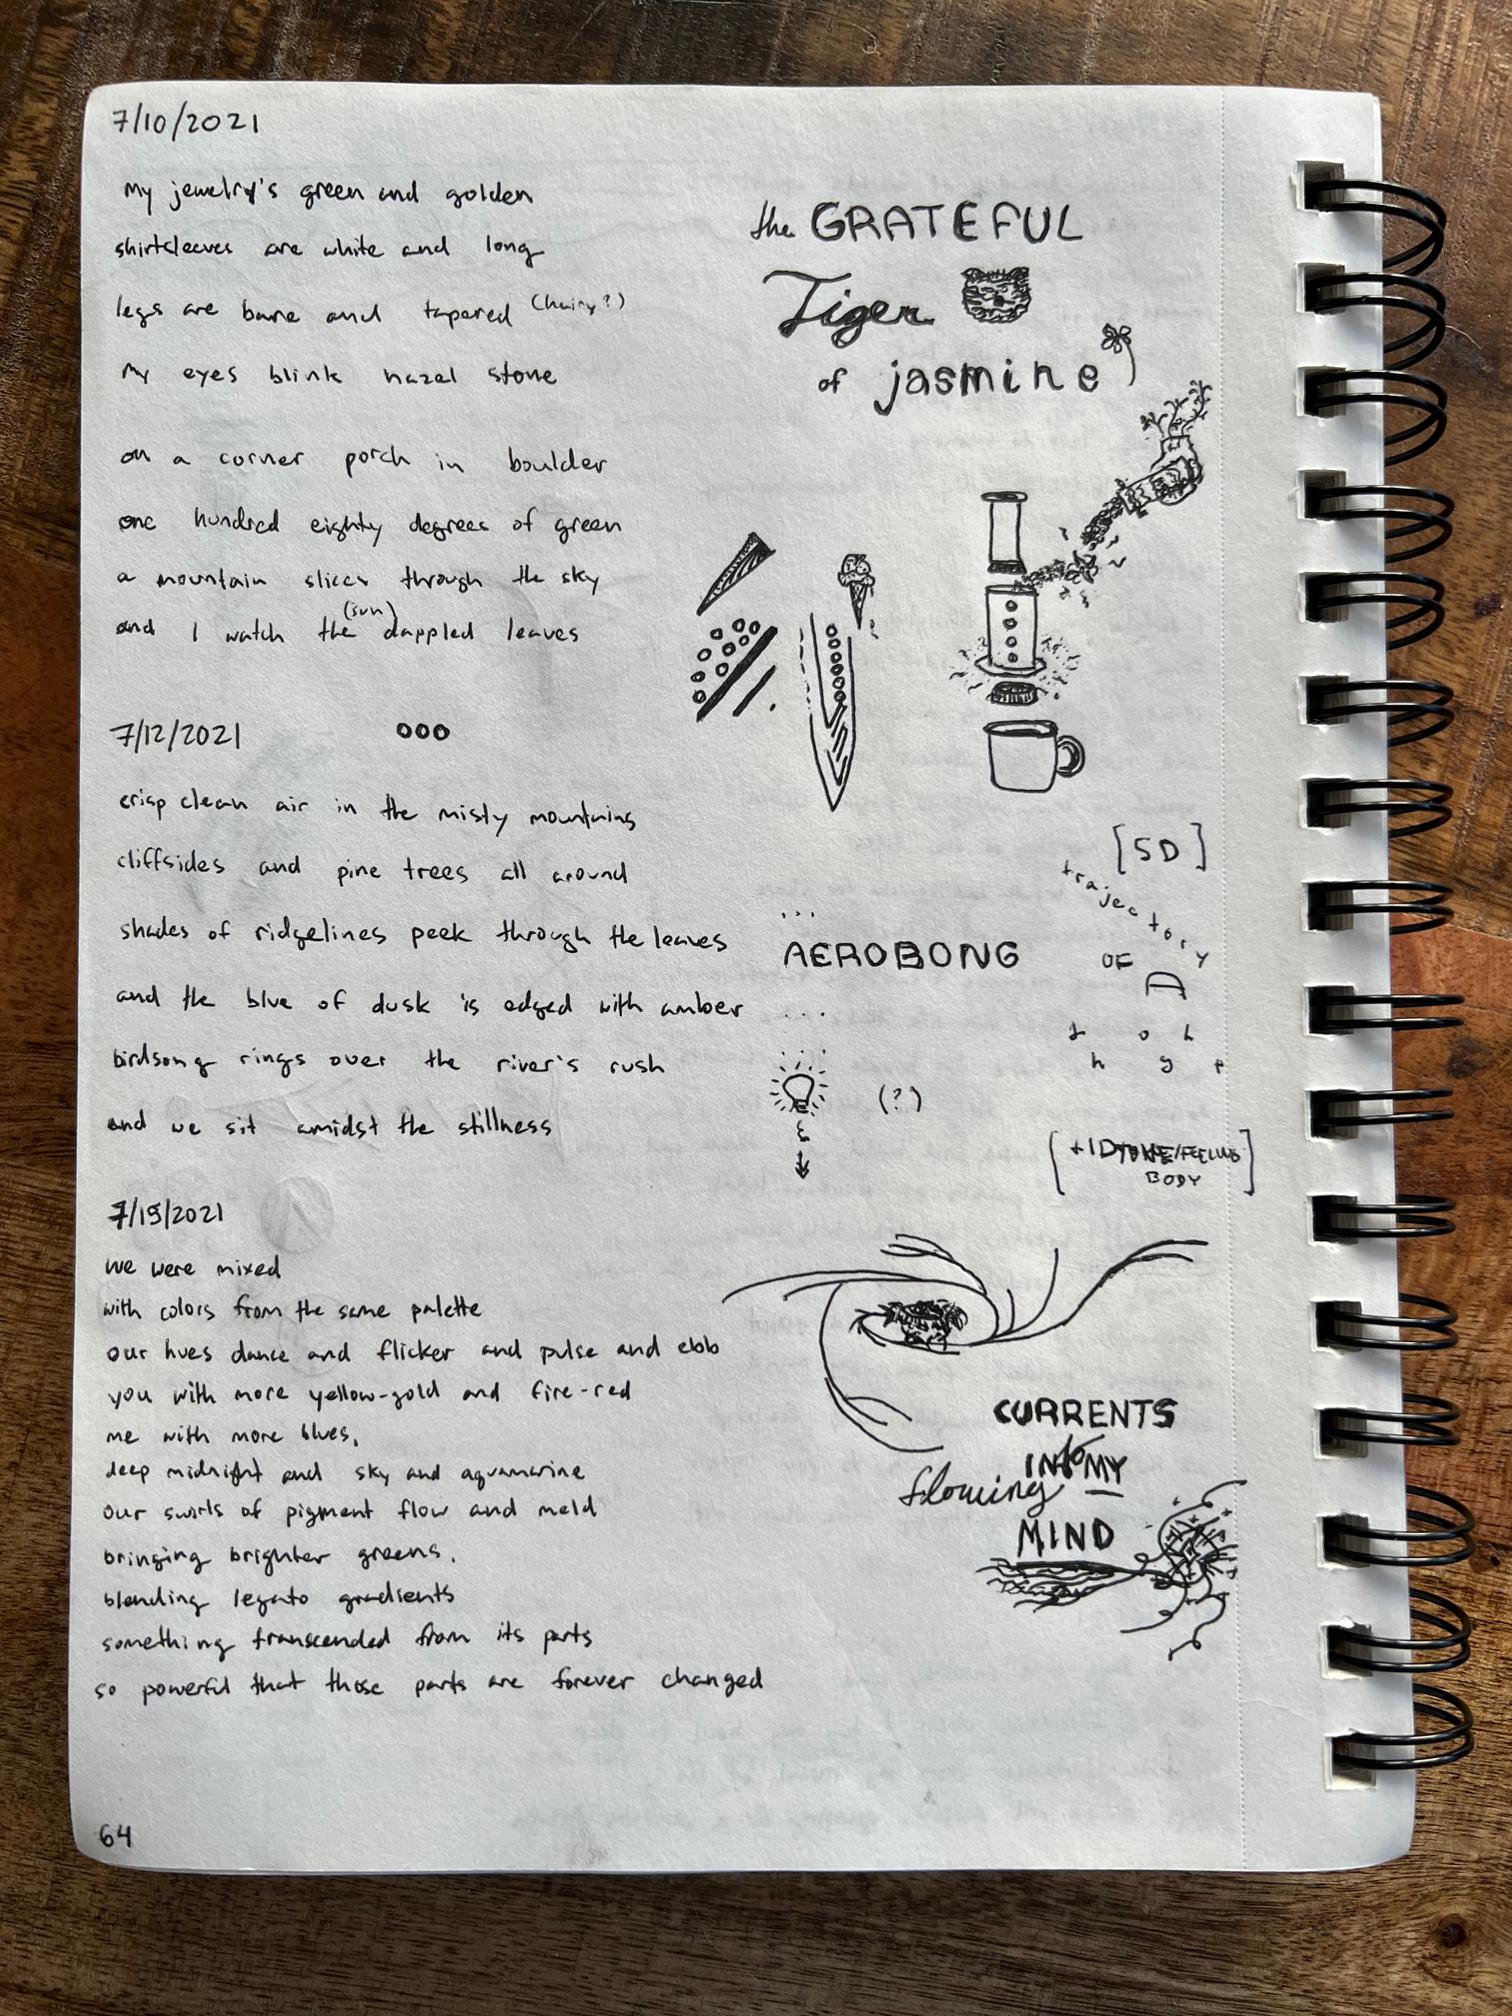 7/10/2021
My jewelry's green and golden
shirtsleeves are white and long
legs are bare and tapered (hairy?)
My eyes blink hazel stone
on a corner porch in boulder
one hundred eighty degrees of green
a mountain slices through the sky
and I watch the (sun) dappled leaves
7/12/2021
crisp clean air in the misty mountains
cliffsides and pine trees all around
shades of ridgelines peek through the leaves
and the blue of dusk is edged with amber
birdsong rings over the river's rush
and we sit amidst the stillness
7/15/2021
we were mixed
with colors from the same palette
our hues dance and flicker and pulse and ebb
you with more yellow-gold and fire-red
me with more blues,
deep midnight and sky and aquamarine
our swirls of pigment flow and meld
bringing brighter greens,
blending legato gradients
something transcended from its parts
so powerful that those parts are forever changed
64
the GRATEFUL
Tiger
of jasmine
[5D]
trajectory
OF
A
...
AEROBONG
...
(?)
[+1D /FEELING
BODY]
CURRENTS
flowing INTO MY
MIND